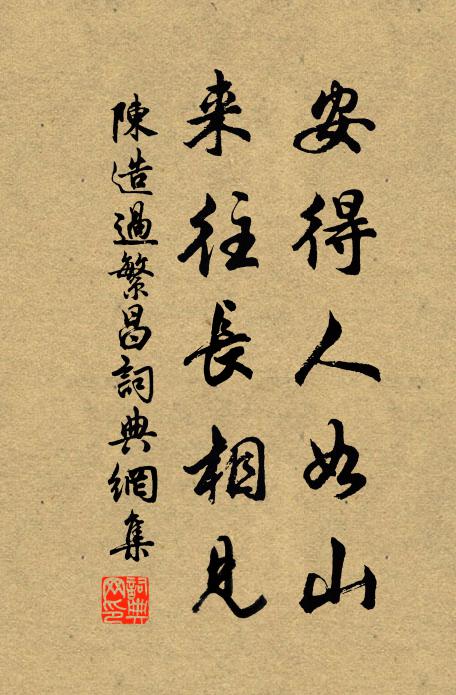 安得人如山
来往長相見
陳造過繁昌詞典網集
詞典網印